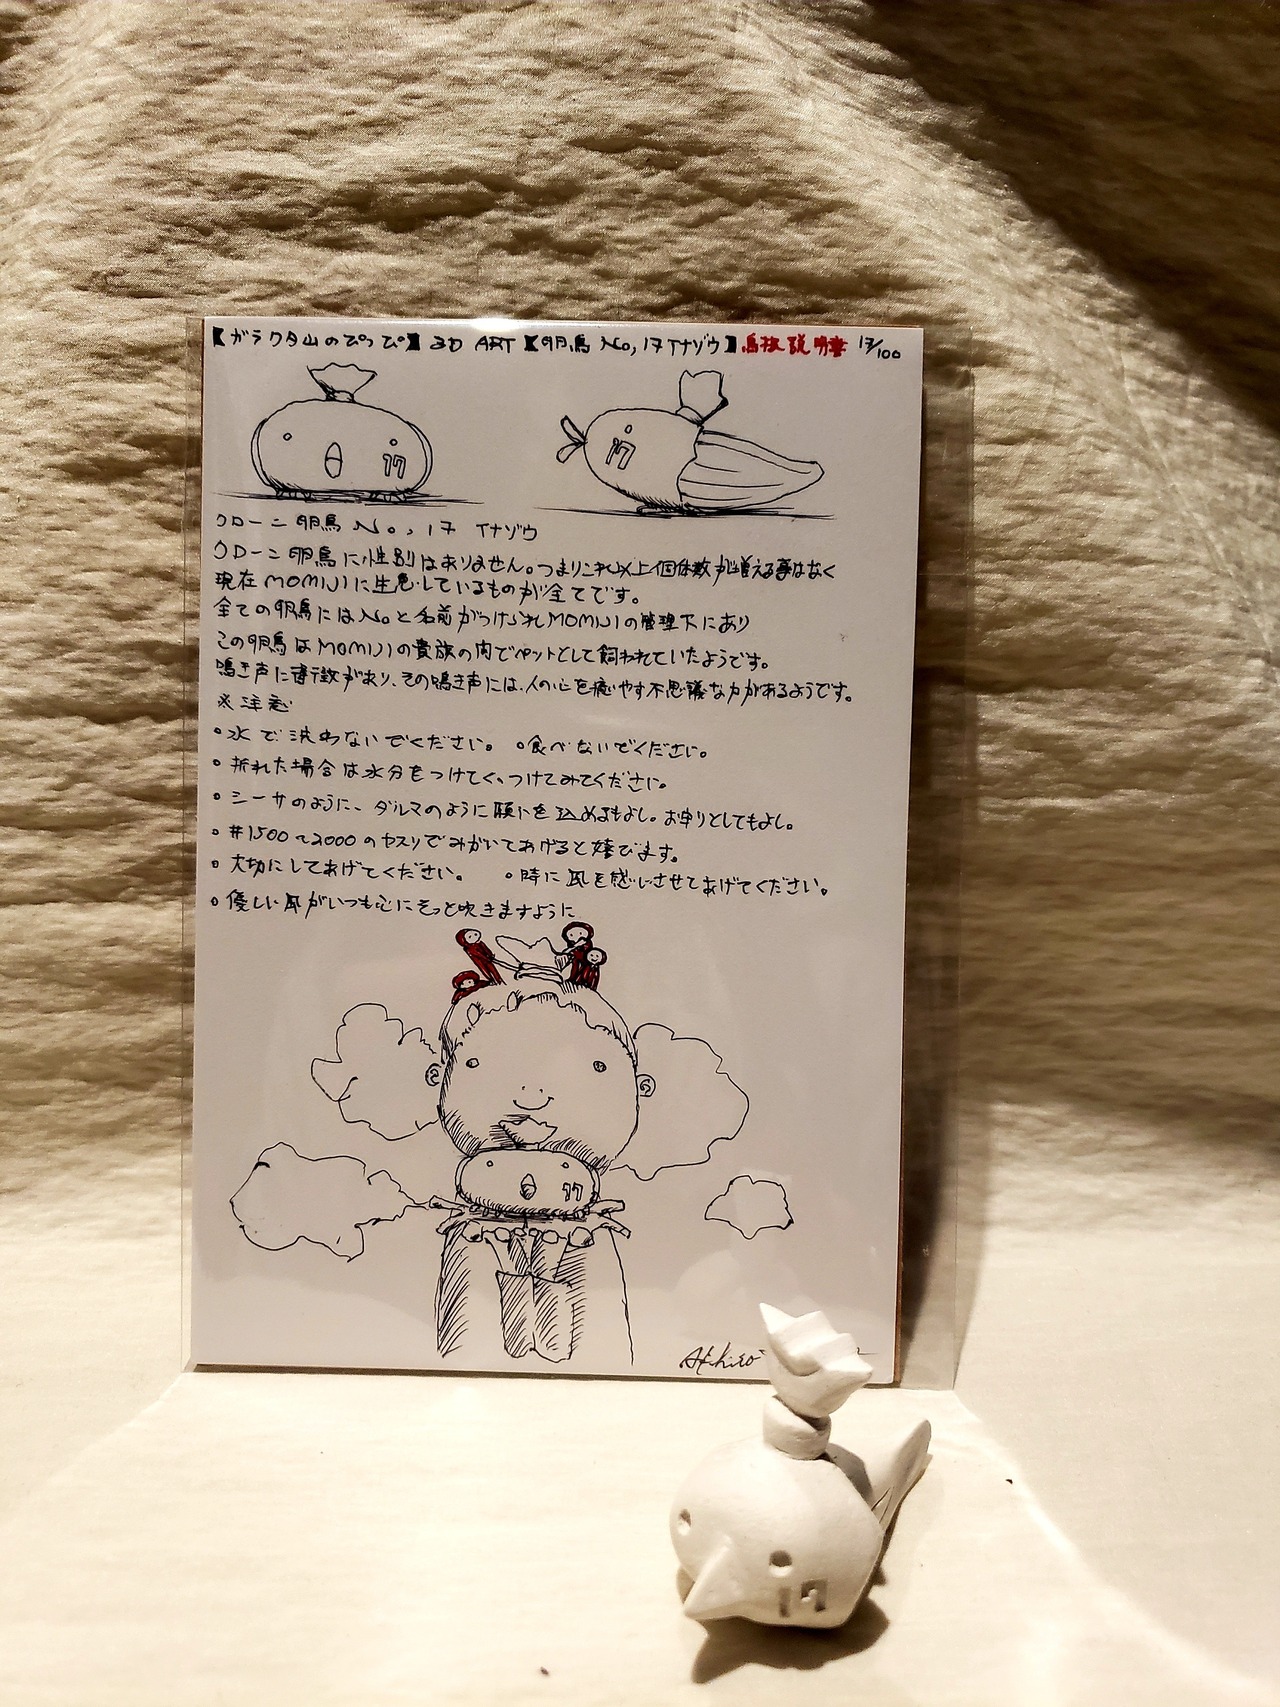 【ガラクタ山のぴっぴ】3D ART【卵鳥 No,17 イナゾウ】鳥扱説明書 17/100
17
17
クローン卵鳥 No,17 イナゾウ
クローン卵鳥に性別はありません。つまりこれ以上個体数が増える事はなく
現在MOMIJIに生息しているものが全てです。
全ての卵鳥にはNoと名前がつけられMOMIJIの管理下にあり
この卵鳥はMOMIJIの貴族の内でペットとして飼われていたようです。
鳴き声に特徴があり、その鳴き声には、人の心を癒やす不思議な力があるようです。
※注意
・水で洗わないでください。 ・食べないでください。
・折れた場合は水分をつけてくっつけてみてください。
・シーサのように、ダルマのように願いを込めるもよし。お守りとしてもよし。
・#1500～2000のヤスリでみがいてあげると喜びます。
・大切にしてあげてください。 ・時に風を感じさせてあげてください。
・優しい風がいつも心にそっと吹きますように
17
Akihiro
17